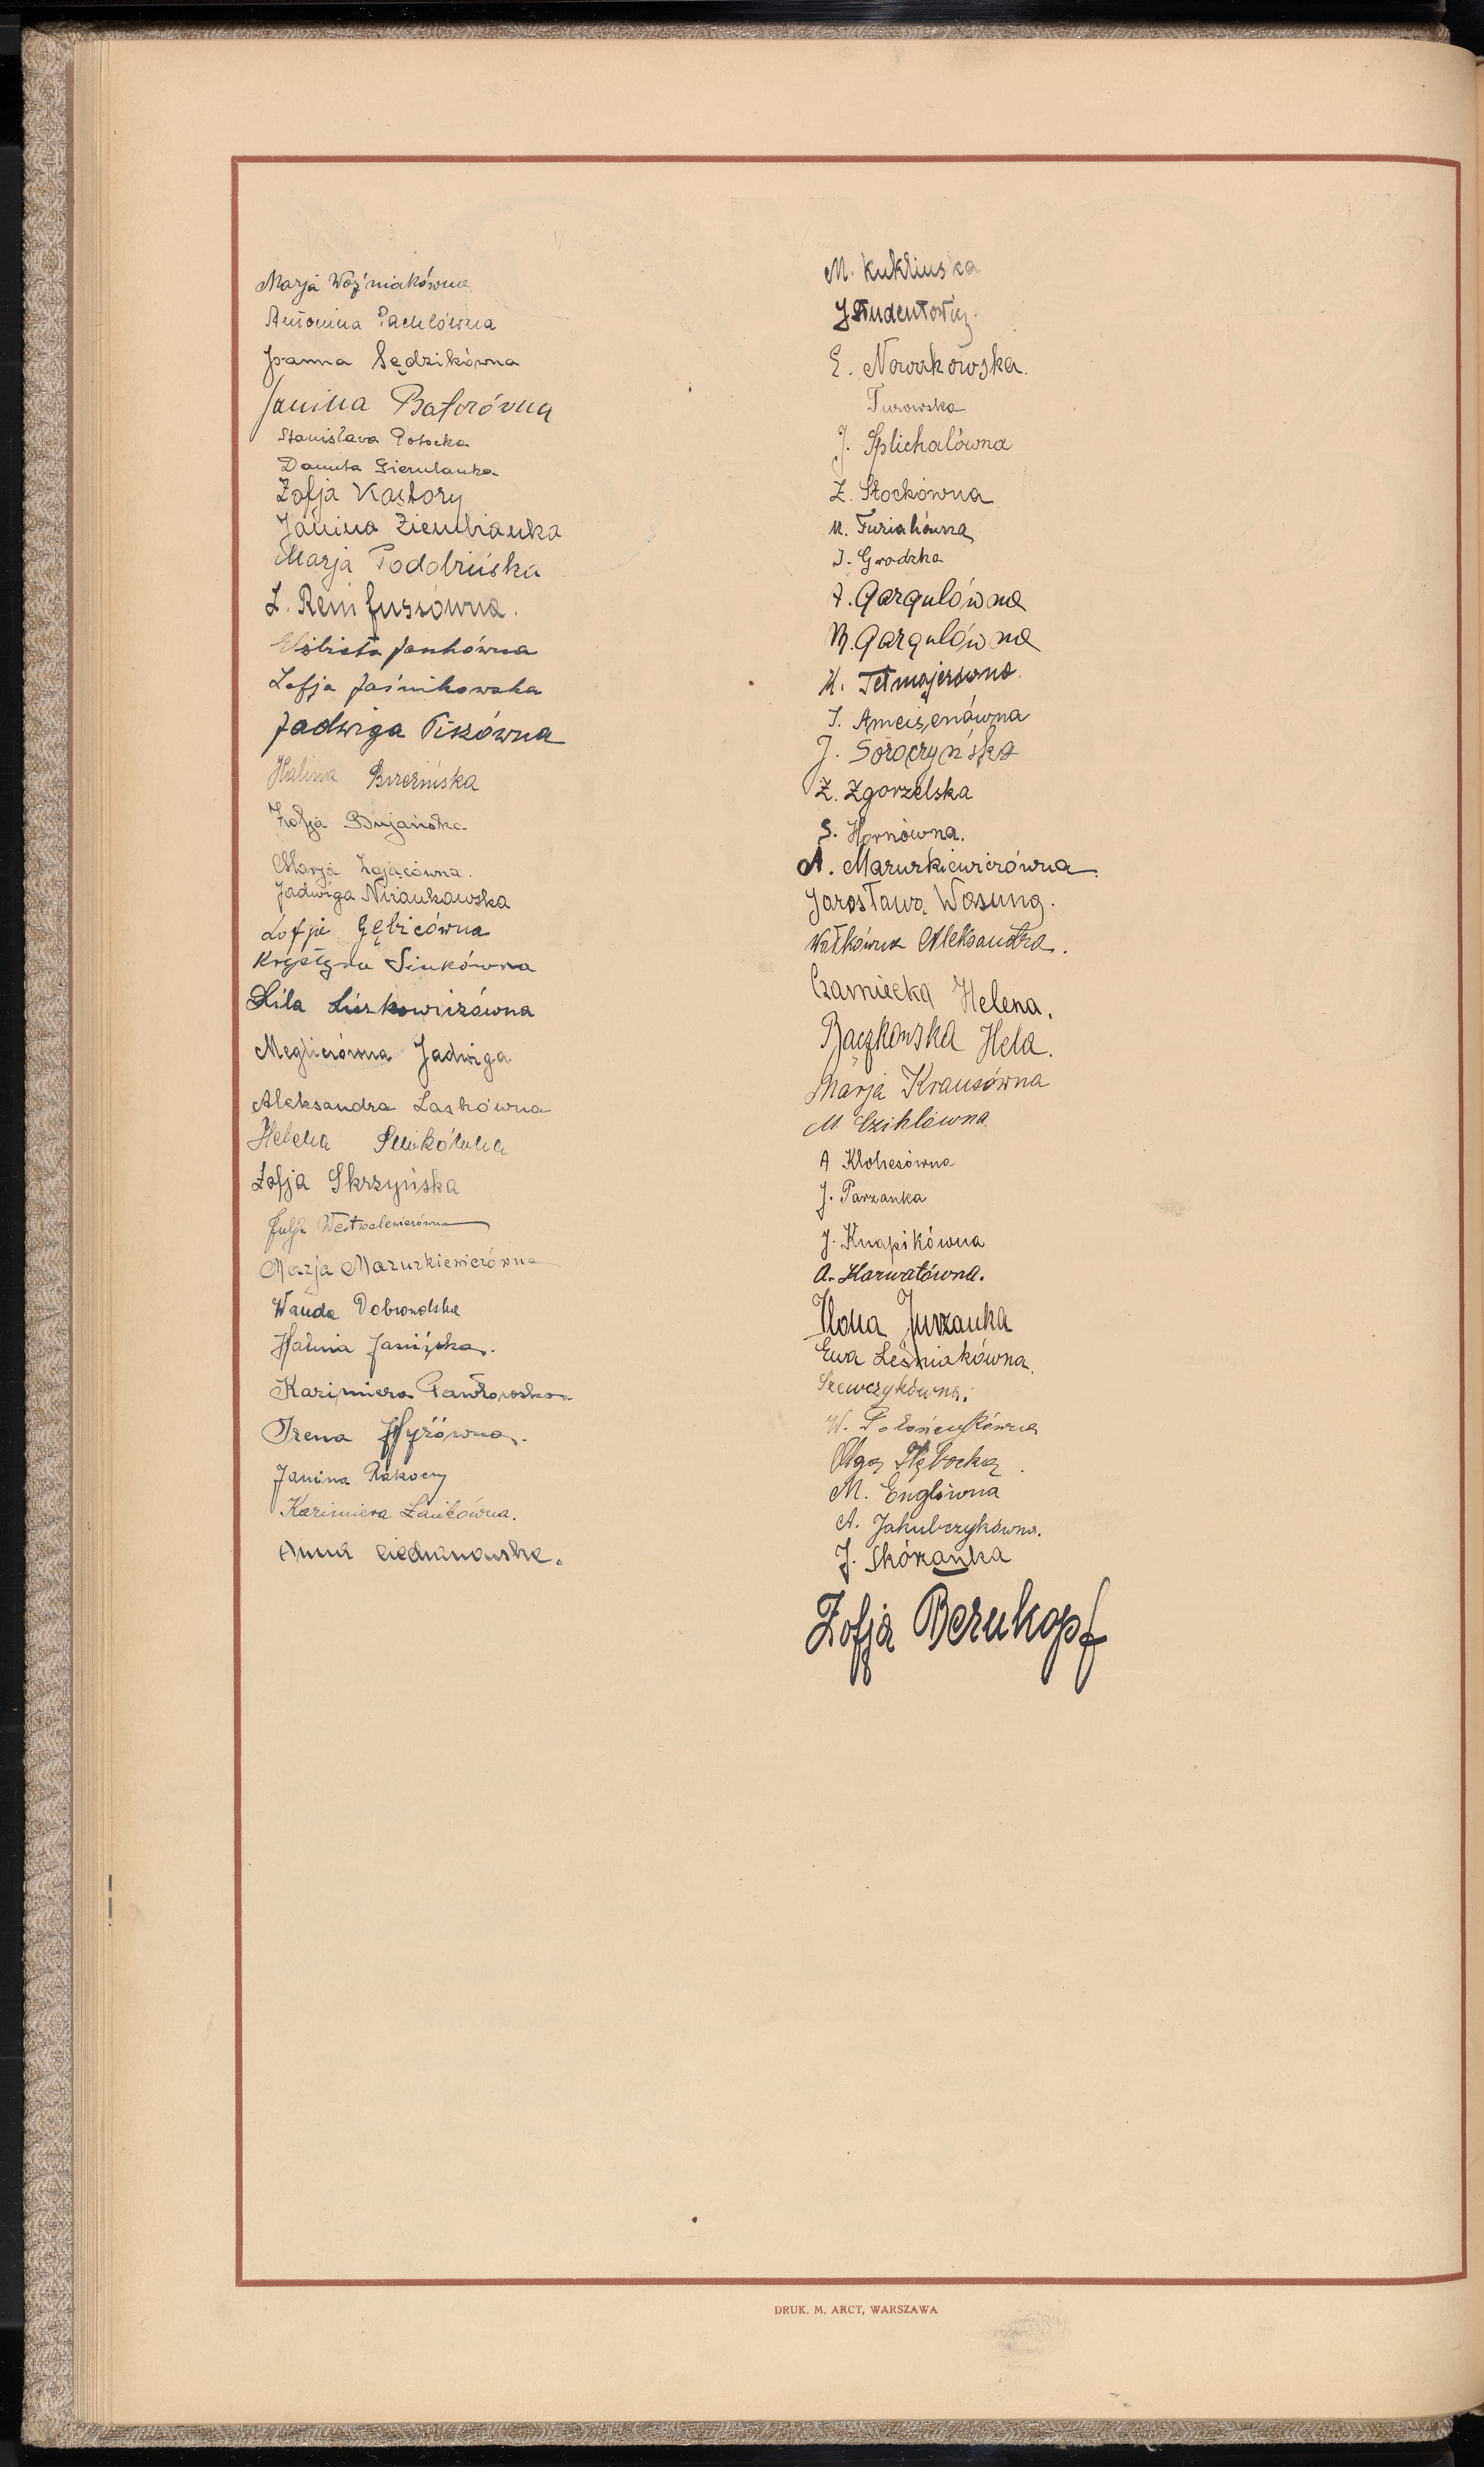 Marja Woźniakówna
Antonina Pachlówna
Joanna Sędzikówna
Janina Batorówna
Stanisława Potocka
Danuta Gierulanka
Zofja Kastory
Janina Ziembianka
Marja Podobińska
L. Reinfussówna.
Elżbieta Jankówna
Zofja Jaśnikowska
Jadwiga Pikówna
Halina Brzezińska
Zofja Bujańska
Marja Zającówna.
Jadwiga Niziankowska
Zofja Gębicówna
Krystyna Sinkówna
Lila Liszkowiczówna
Meglicrówna Jadwiga
Aleksandra Laskówna
Helena
Zofja Skrzyńska
Julja Westwalewiczówna
Marja Mazurkiewiczówna
Wanda Dobrowolska
Halina Janińska.
Kazimiera Pawłowska
Irena Hyżówna.
Janina Rakoczy
Kazimiera Zankówna.
Anna
M. Kuklinska
J Studentowicz.
E. Nowakowska.
Turowska
J. Splichalówna
Z. Stockówna
M. Furiałówna
J. Grodzka
A. Gargulówna
M. Gargulówna
K. Tetmajerówna.
J. Ameisenówna
J. Soroczyńska
Z. Zgorzelska
S. Hornówna.
A. Mazurkiewiczówna.
Jarosława Wasung.
Watkówna Aleksandra.
Czarniecka Helena.
Bączkowska Hela.
Marja Krausówna
M. Czikłówna
A Klohesówna
J. Parzanka
J. Knapikówna
A. Karwatówna.
Ilona Jurzanka
Ewa Leśniakówna.
Szewczykówna.
W. Połończykówna
Olga Głębocka.
M. Englówna
A. Jakubczykówna.
J. Skórzanka
Zofja Bernkopf
DRUK. M. ARCT, WARSZAWA